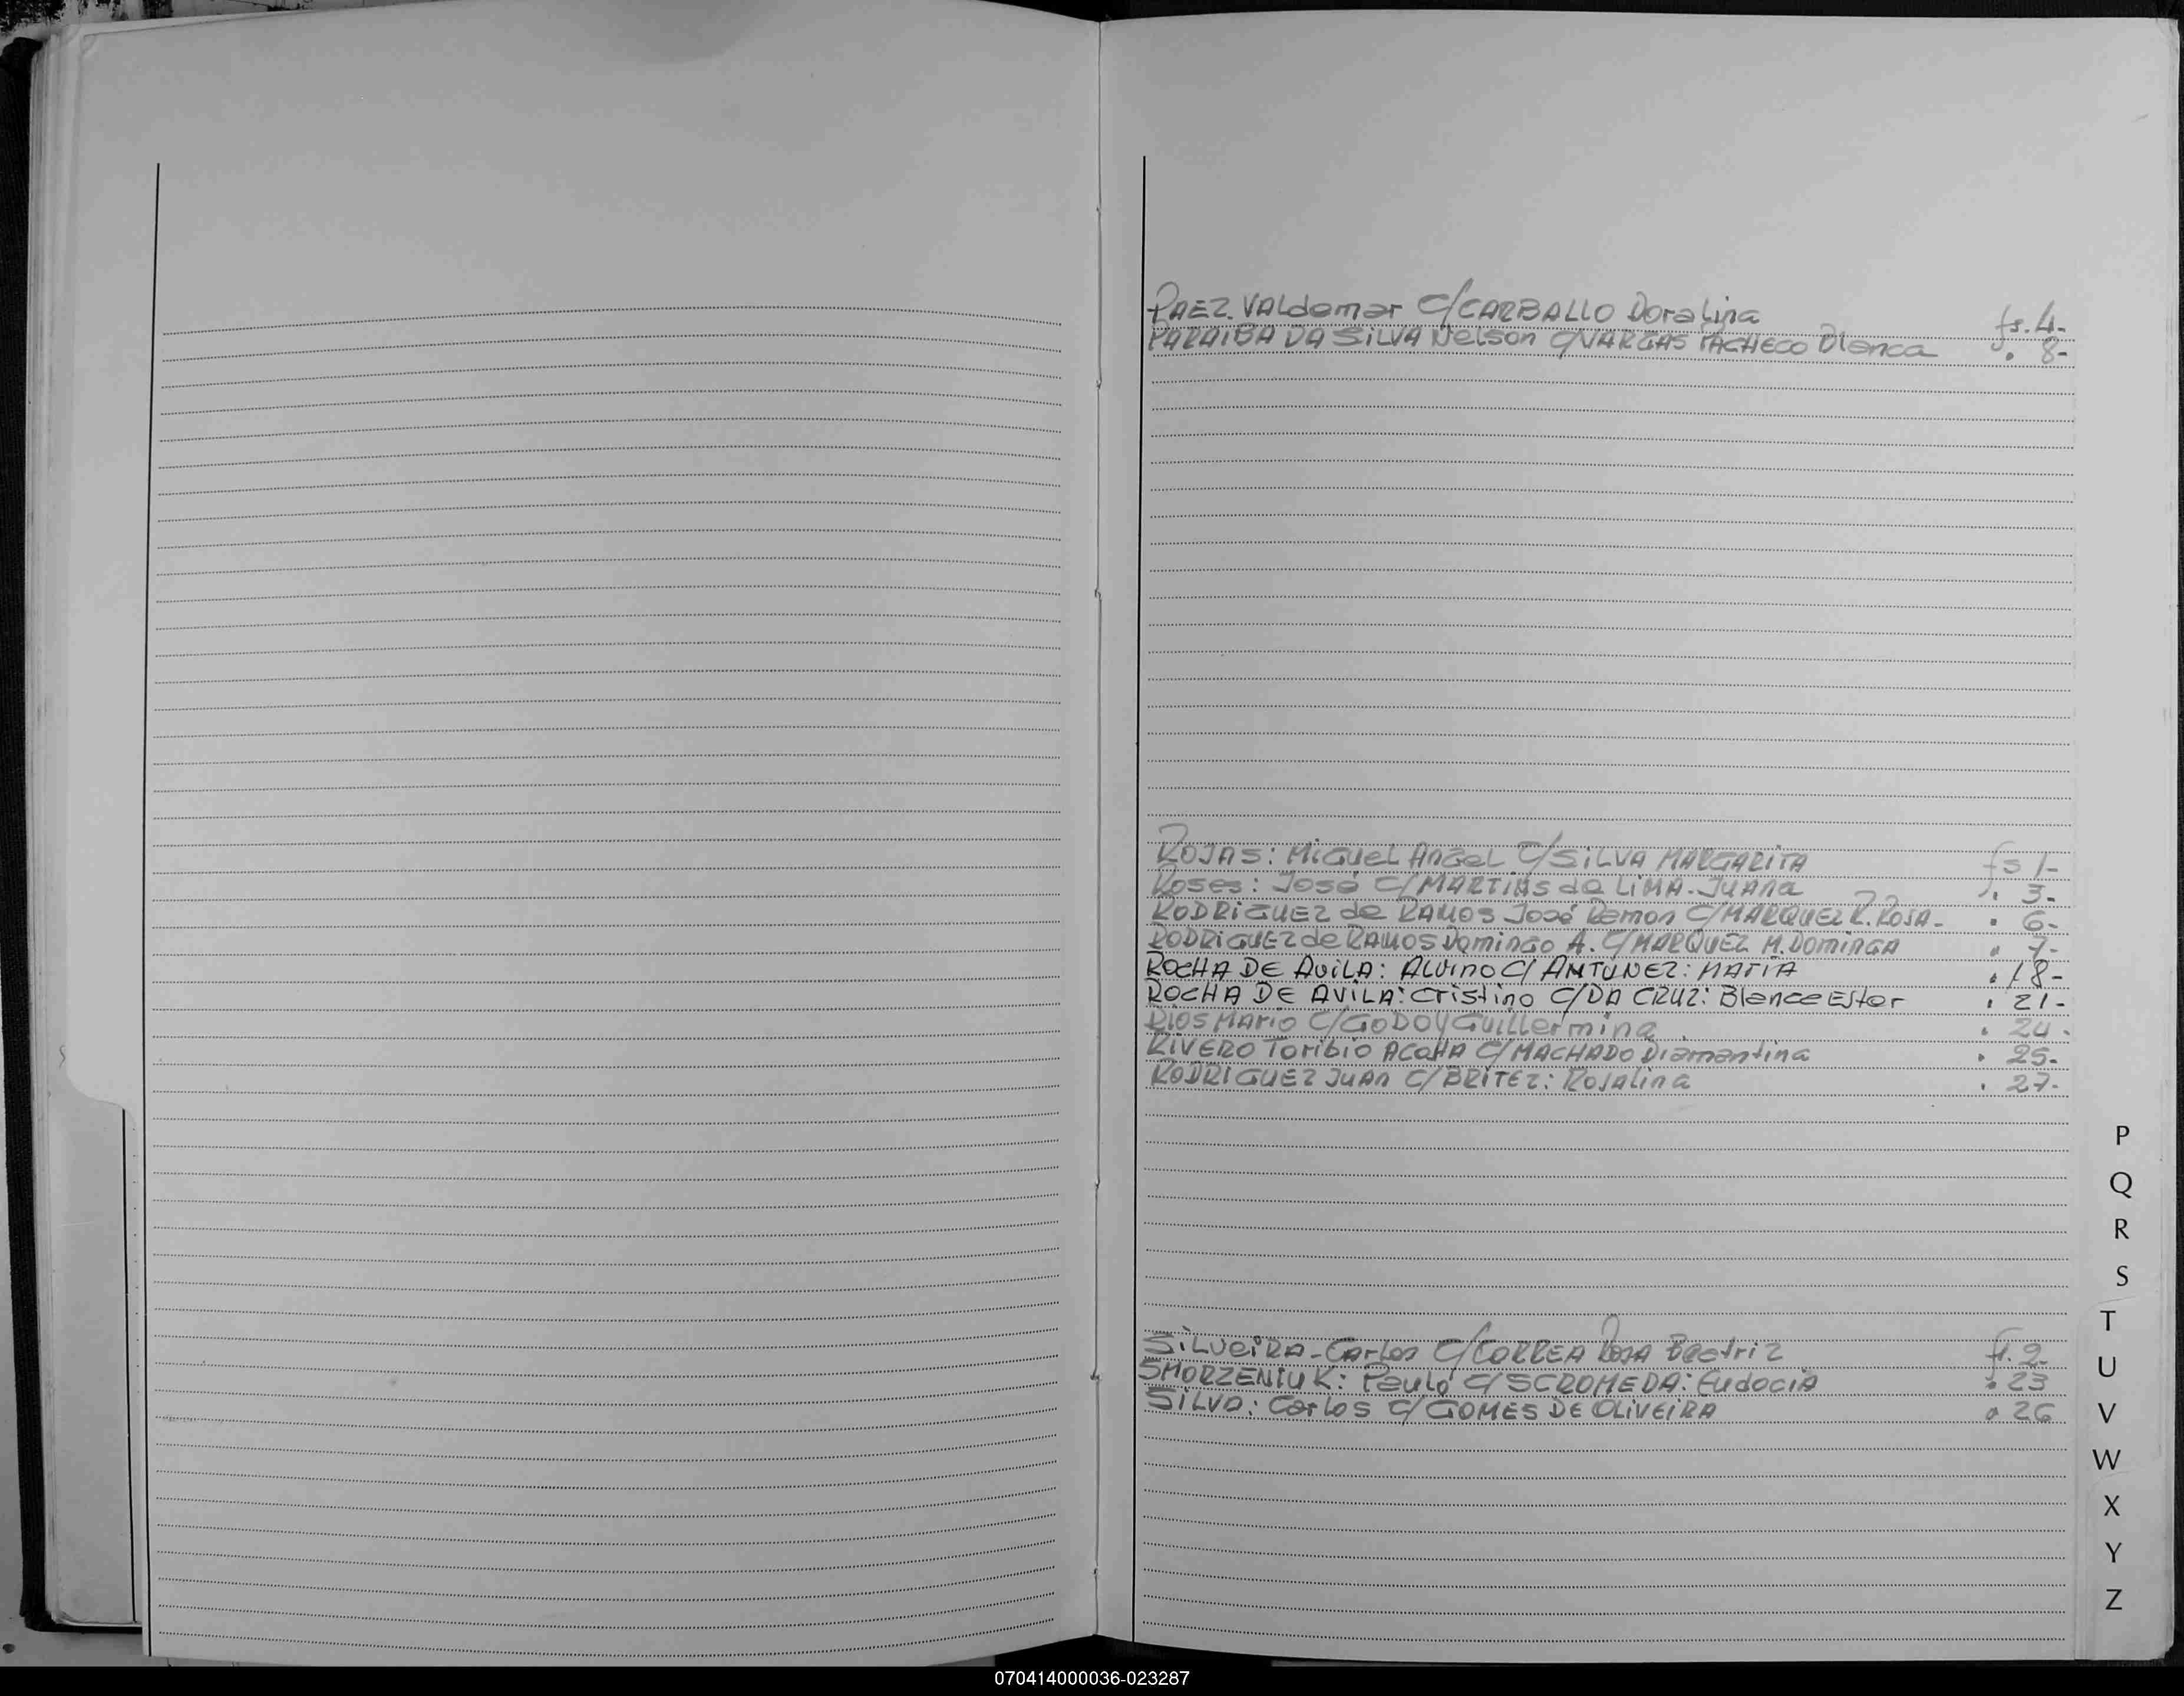 PAEZ. VALdemar C/CARBALLO Doralina fs. 4-
PARAIBA DA SILVA Nelson C/VARGAS PACHECO Blanca " 8-
ROJAS: MIGUEL ANGEL C/SILVA MARGARITA fs 1-
Roses: José C/MARTINS de LIMA. JUANA " 3-
RODRIGUEZ de RAMOS José Ramon C/MARQUEZ R. ROSA- " 6-
RODRIGUEZ de RAMOS Domingo A. C/MARQUEZ M. DOMINGA " 7-
ROCHA DE AVILA: ALVINO C/ ANTUNEZ: MARIA " 18-
ROCHA DE AVILA: Cristino C/DA CRUZ: Blanca Ester " 21-
RIOS MARIO C/GODOY Guillermina " 24-
RIVERO Toribio ACOSTA C/MACHADO Diamantina " 25-
RODRIGUEZ JUAN C/BRITEZ: ROSALINA " 27-
SILVEIRA-Carlos C/CORREA Rosa Beatriz fs. 2-
SMORZENIUK: Paulo C/SCROMEDA: Eudocia " 23
SILVA: Carlos C/ GOMES DE OLIVEIRA " 26
P
Q
R
S
T
U
V
W
X
Y
Z
070414000036-023287